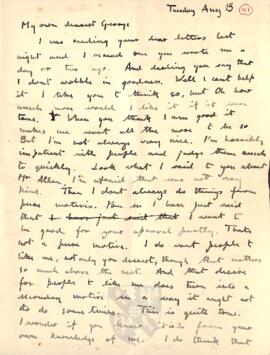 Tuesday Aug 15
(41)
My own dearest George
I was reading your dear letters last
night and I reread one you wrote me a
day or two ago. And darling you say that
I don't wobble in goodness. Well I can't help
it I like you to think so, but Oh how
much more would I like it if it was
true. When you think I am good it
makes me want all the more to be so
But I'm not always very nice. I'm horribly
impatient with people and judge them much
to quickly. Look what I said to you about
Mr Allen, I'm afraid that was not very
kind. Then I don't always do things from
pure motives. Now in I have just said
that I have just said that I want to
be good for your approval partly. Thats
not a pure motive. I do want people to
like me, not only you dearest, though that matters
so much above the rest. And that desire
for people to like me does turn into a
secondary motive in a way it ought not
do some times. This is quite true.
I wonder if you know it also from your
own knowledge of me. I do think that